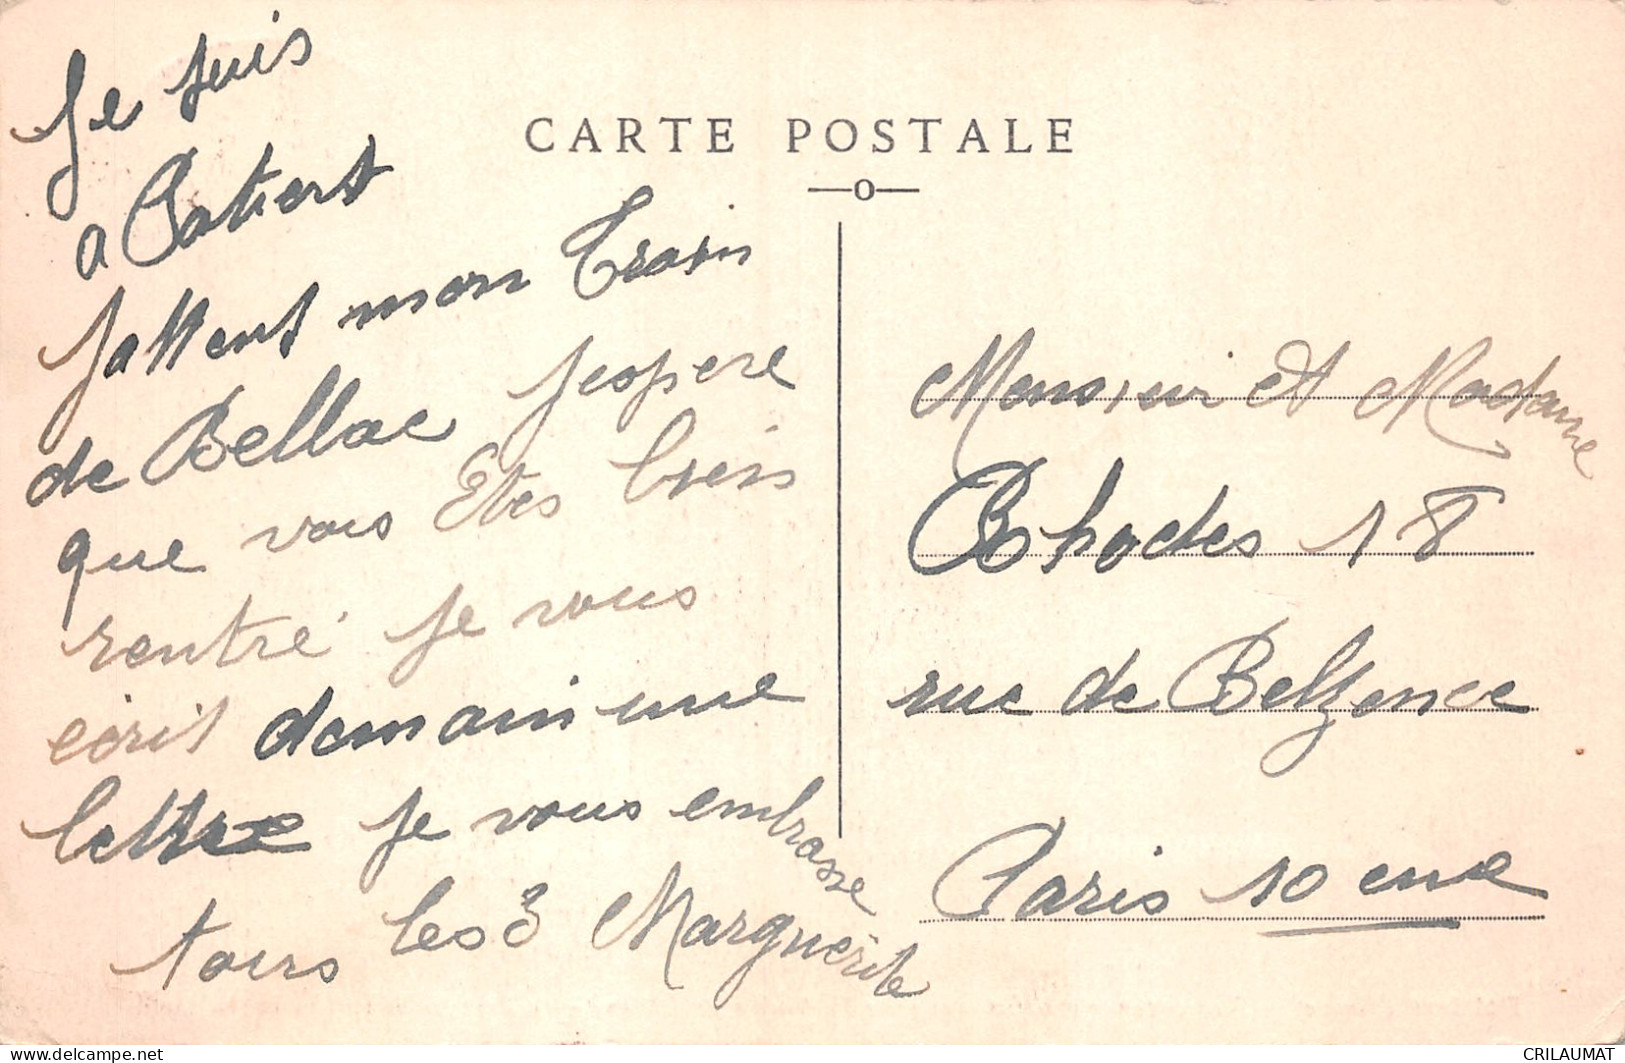 CARTE POSTALE
Je suis
a Potiert
Jattent mon Train
de Bellac Jespere
que vous Etes bien
rentré je vous
écrit demain une
lettre je vous embrasse
tous les 3 Marguerite
Monsieur et Madame
Rhodes 18
rue de Belzence
Paris 10 eme
delcampe.net
CRILAUMAT